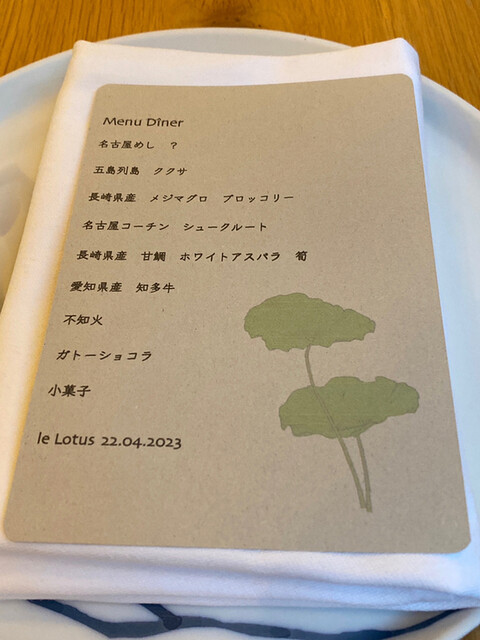 Menu Dîner
名古屋めし　？
五島列島　ククサ
長崎県産　メジマグロ　ブロッコリー
名古屋コーチン　シュークルート
長崎県産　甘鯛　ホワイトアスパラ　筍
愛知県産　知多牛
不知火
ガトーショコラ
小菓子
le Lotus 22.04.2023